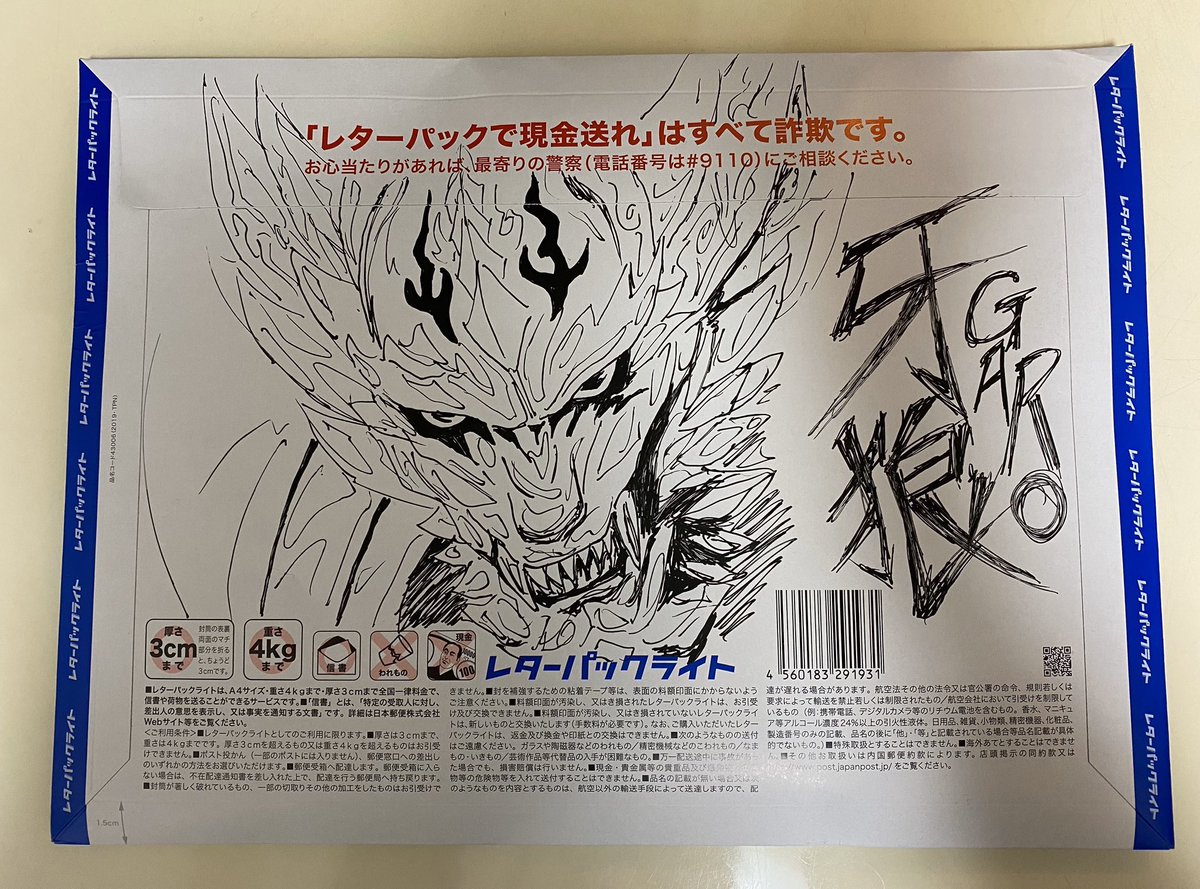 「レターパックで現金送れ」はすべて詐欺です。
お心当たりがあれば、最寄りの警察(電話番号は#9110)にご相談ください。
牙狼
GARO
レターパックライト
レターパックライト
レターパックライト
レターパックライト
レターパックライト
レターパックライト
レターパックライト
レターパックライト
レターパックライト
レターパックライト
レターパックライト
レターパックライト
品名コード43006(2019・TPN)
厚さ
3cm
まで
封筒の表裏
両面のマチ
部分を折る
と、ちょうど
3cmです。
重さ
4kg
まで
信書
われもの
現金
100
レターパックライト
4 560183 291931
■レターパックライトは、A4サイズ・重さ4kgまで・厚さ3cmまで全国一律料金で、
信書や荷物を送ることができるサービスです。■「信書」とは、「特定の受取人に対し、
差出人の意思を表示し、又は事実を通知する文書」です。詳細は日本郵便株式会社
Webサイト等をご覧ください。
<ご利用条件>■レターパックライトとしてのご利用に限ります。■厚さは3cmまで、
重さは4kgまでです。厚さ3cmを超えるもの又は重さ4kgを超えるものはお引受
けできません。■ポスト投かん(一部のポストには入りません)、郵便窓口への差出し
のいずれかの方法をお選びいただけます。■郵便受箱へ配達します。郵便受箱に入ら
ない場合は、不在配達通知書を差し入れた上で、配達を行う郵便局へ持ち戻ります。
■封筒が著しく破れているもの、一部の切取りその他の加工をしたものはお引受けで
きません。■封を補強するための粘着テープ等は、表面の料額印面にかからないよう
ご注意ください。■料額印面が汚染し、又はき損されたレターパックライトは、お引受
け及び交換できません。■料額印面が汚染し、又はき損されていないレターパックライ
トは、新しいものと交換いたします(手数料が必要です)。なお、ご購入いただいたレター
パックライトは、返金及び換金や印紙との交換はできません。■次のようなものの送付
はご遠慮ください。ガラスや陶磁器などのわれもの/精密機械などのこわれもの/なま
もの・いきもの/芸術作品等代替品の入手が困難なもの。■万一配送途中に事故があっ
た場合でも、損害賠償は行いません。■現金・貴金属等の貴重品及び
物等の危険物等を入れて送付することはできません。■品名の記載が無い場合又は次
のようなものを内容とするものは、航空以外の輸送手段によって送達しますので、配
達が遅れる場合があります。航空法その他の法令又は官公署の命令、規則若しくは
要求によって輸送を禁止若しくは制限されたもの/航空会社において引受を制限して
いるもの(例:携帯電話、デジタルカメラ等のリチウム電池を含むもの。香水、マニキュ
ア等アルコール濃度24%以上の引火性液体。日用品、雑貨、小物類、精密機器、化粧品、
製造番号のみの記載、品名の後に「他」・「等」と記載されている場合等品名記載が具体
的でないもの。)■特殊取扱とすることはできません。■海外あてとすることはできませ
ん。■その他お取扱いは内国郵便約款によります。店頭掲示の同約款又は
www.post.japanpost.jp/をご覧ください。
1.5cm